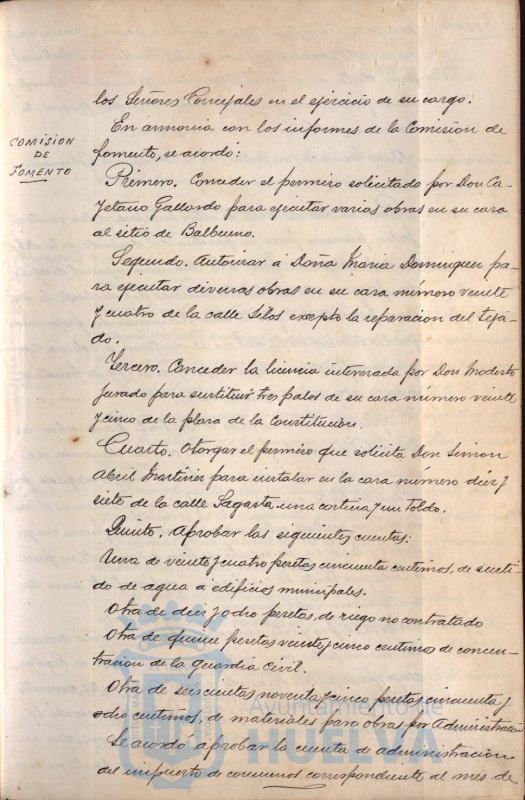 los Señores Concejales en el ejercicio de su cargo.
En armonia con los informes de la Comision de
COMISION
DE
FOMENTO
fomento, se acordó:
Primero. Conceder el permiso solicitado por Don Ca-
yetano Gallardo para ejecutar varias obras en su casa
al sitio de Balbueno.
Segundo. Autorizar á Doña Maria Dominguez pa-
ra ejecutar diversas obras en su casa número veinte
y cuatro de la calle Silos excepto la reparacion del teja-
do.
Tercero. Conceder la licencia interesada por Don Modesto
Jurado para sustituir tres palos de su casa número veinte
y cinco de la plaza de la Constitución.
Cuarto. Otorgar el permiso que solicita Don Simon
Abril Martinez para instalar en la casa número diez y
siete de la calle Sagasta una cortina y un toldo.
Quinto. Aprobar las siguientes cuentas:
Una de veinte y cuatro pesetas cincuenta centimos, de surti-
do de agua á edificios municipales.
Otra de diez y ocho pesetas, de riego no contratado
Otra de quince pesetas veinte y cinco centimos de concen-
tracion de la Guardia Civil.
Otra de seiscientas noventa y cinco pesetas cincuenta y
ocho centimos, de materiales para obras por Administración
Se acordó aprobar la cuenta de administracion
del impuesto de consumos correspondiente al mes de
Ayuntamiento de
HUELVA